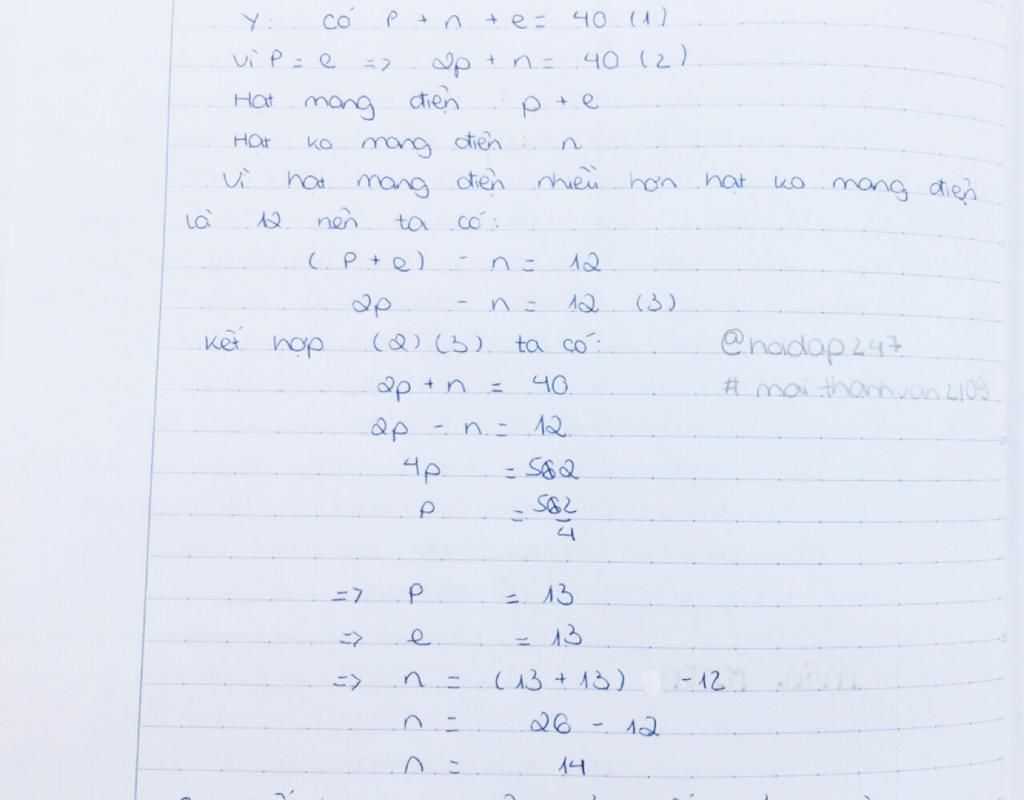 Y: có P + n + e = 40 (1)
Vì P = e => 2p + n = 40 (2)
Hạt mang điện : p + e
Hạt ko mang điện : n
Vì hạt mang điện nhiều hơn hạt ko mang điện
là 12 nên ta có:
(P + e) - n = 12
2p - n = 12 (3)
Kết hợp (2) (3) ta có:
@hoidap247
# maithanhvan2109
2p + n = 40
2p - n = 12
4p = 52
P = 52/4
=> P = 13
=> e = 13
=> n = (13 + 13) - 12
n = 26 - 12
n = 14